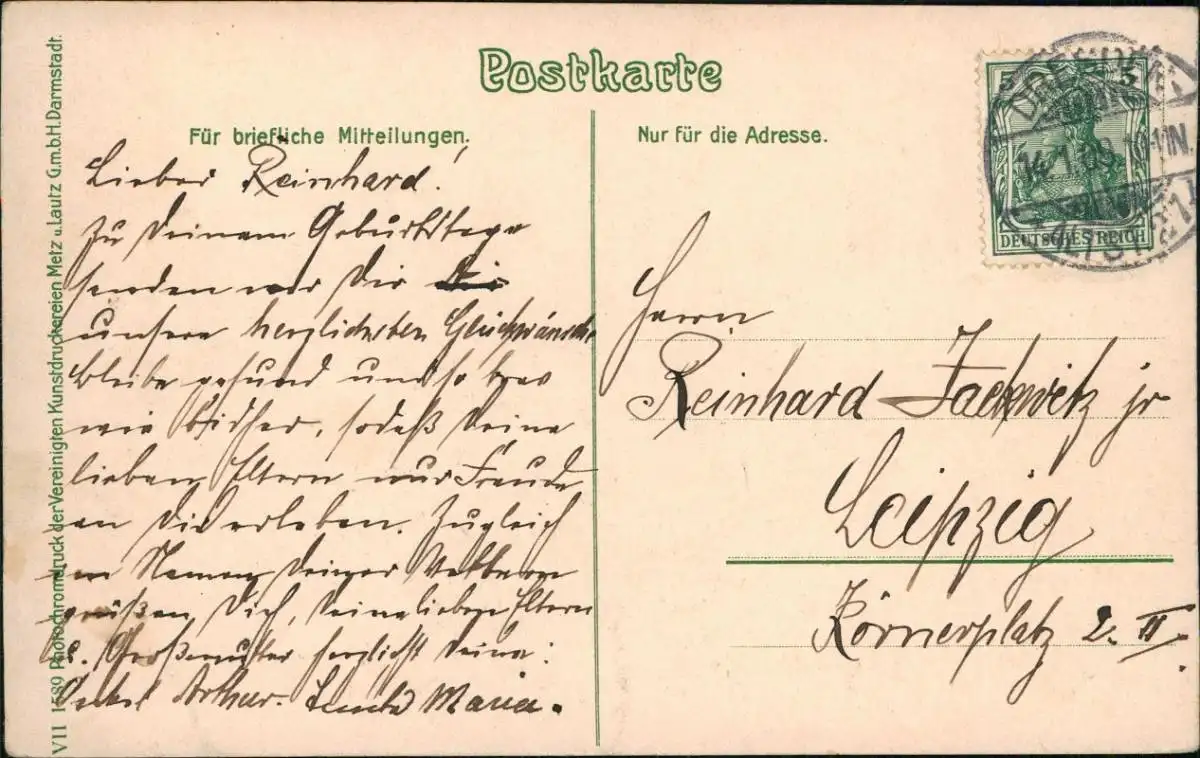 Postkarte
Für briefliche Mitteilungen.
Nur für die Adresse.
Lieber Reinhard!
Zu Deinem Geburtstage
senden wir Dir die
unsere herzlichsten Glückwünsche
bleibe gesund und so brav
wie bisher, sodaß Deine
lieben Eltern nur Freude
an Dir erleben. Zugleich
im Namen Deiner
grüßen Dich, Deine lieben Eltern
u. Großmutter herzlichst Deine:
Onkel Arthur. Tante Maria.
Herrn
Reinhard Jackwitz jr
Leipzig
Körnerplatz 2. II.
DRESDEN
14.1.09 10-11N.
ALTST. 21.
5 5
DEUTSCHES REICH
VII 1589 Photochromdruck der Vereinigten Kunstdruckereien Metz u. Lautz G.m.b.H. Darmstadt.